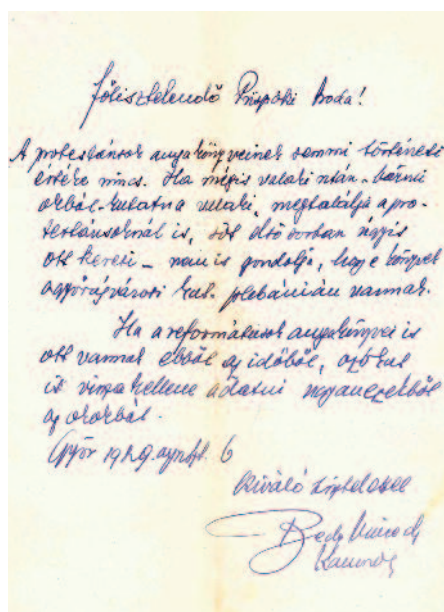 Főtisztelendő Püspöki Iroda!
A protestánsok anyakönyveinek semmi történeti
értéke nincs. Ha mégis valaki után bármi
okból kutatna valaki, megtalálja a pro-
testánsoknál is, sőt első sorban úgyis
ott keresi – nem is gondolja, hogy e könyvek
a győrújvárosi kat. plebánián vannak.
Ha a reformátusok anyakönyvei is
ott vannak ebből az időből, azokat
is vissza kellene adatni ugyanezekből
az okokból.
Győr 1929.
6
Kiváló tisztelettel